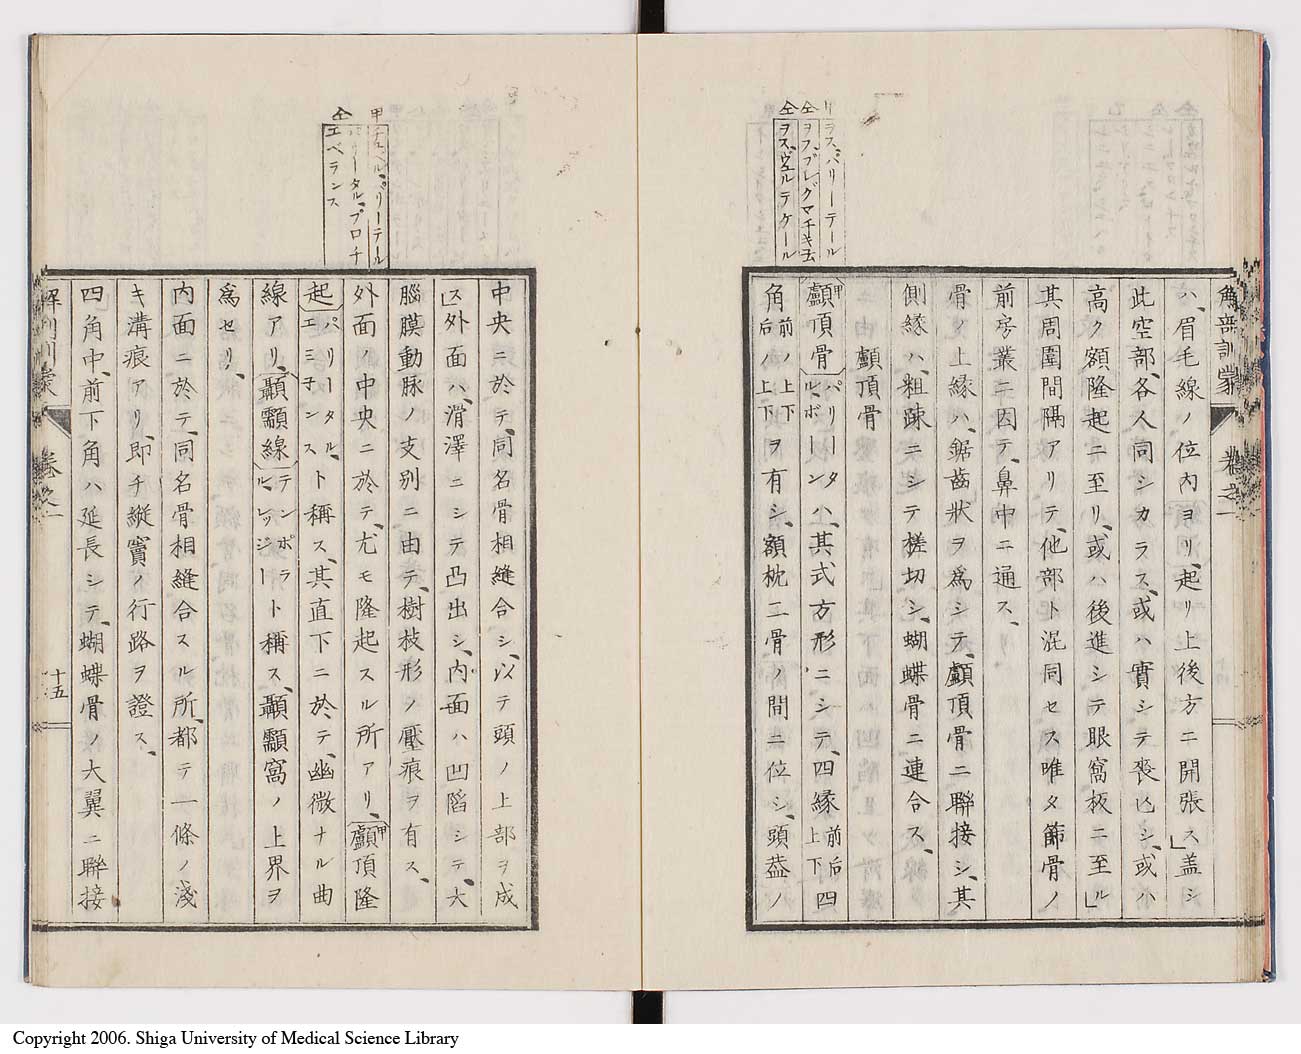 甲ラス、パリーテール
仝ヲス、ブレグマチキュム
仝ヲス、ヴェルテケール
解剖訓蒙 卷之一
ハ、眉毛線ノ位内ヨリ、起リ上後方ニ開張ス」盖シ
此空部、各人同シカラス、或ハ實シテ喪亾シ、或ハ
高ク額隆起ニ至リ、或ハ後進シテ眼窩板ニ至ル」
其周圍間隔アリテ、他部ト混同セス唯タ篩骨ノ
前房叢ニ因テ、鼻中ニ通ス、
骨ノ上緣ハ、鋸齒狀ヲ爲シテ、顱頂骨ニ聯接シ、其
側緣ハ、粗踈ニシテ槎切シ、蝴蝶骨ニ連合ス、
顱頂骨
顱頂骨 甲 パリータル、ボーン ハ、其式方形ニシテ、四緣 前后上下 四
角 前ノ上下 后ノ上下 ヲ有シ、額枕二骨ノ間ニ位シ、頭葢ノ
甲チュベル、パリーテール
パリータル、プロチ
仝エベランス
中央ニ於テ、同名骨相縫合シ、以テ頭ノ上部ヲ成
ス」外面ハ、滑澤ニシテ凸出シ、内面ハ凹陷シテ、大
腦膜動脉ノ支别ニ由テ、樹枝形ノ壓痕ヲ有ス、
外面ノ中央ニ於テ、尤モ隆起スル所アリ、顱頂隆
起 甲 パリータル、エミチンス ト稱ス、其直下ニ於テ、幽微ナル曲
線アリ、顳顬線 テンポラル、リッジー ト稱ス、顳顬窩ノ上界ヲ
爲セリ、
内面ニ於テ、同名骨相縫合スル所、都テ一條ノ淺
キ溝痕アリ、即チ縱竇ノ行路ヲ證ス、
四角中、前下角ハ延長シテ、蝴蝶骨ノ大翼ニ聯接
解剖訓蒙 卷之一 十五
Copyright 2006. Shiga University of Medical Science Library